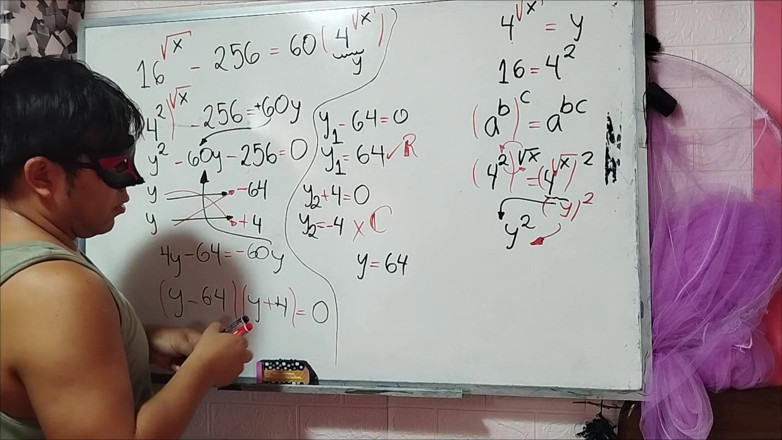 16^√x - 256 = 60(4^√x)
y
4²)^√x - 256 = +60y
y² - 60y - 256 = 0
y -64
y +4
4y - 64 = -60y
(y - 64)(y + 4) = 0
y₁ - 64 = 0
y₁ = 64 ✓ R
y₂ + 4 = 0
y₂ = -4 × C
y = 64
4^√x = y
16 = 4²
(a^b)^c = a^bc
(4²)^√x = (4^√x)²
(y)²
y²